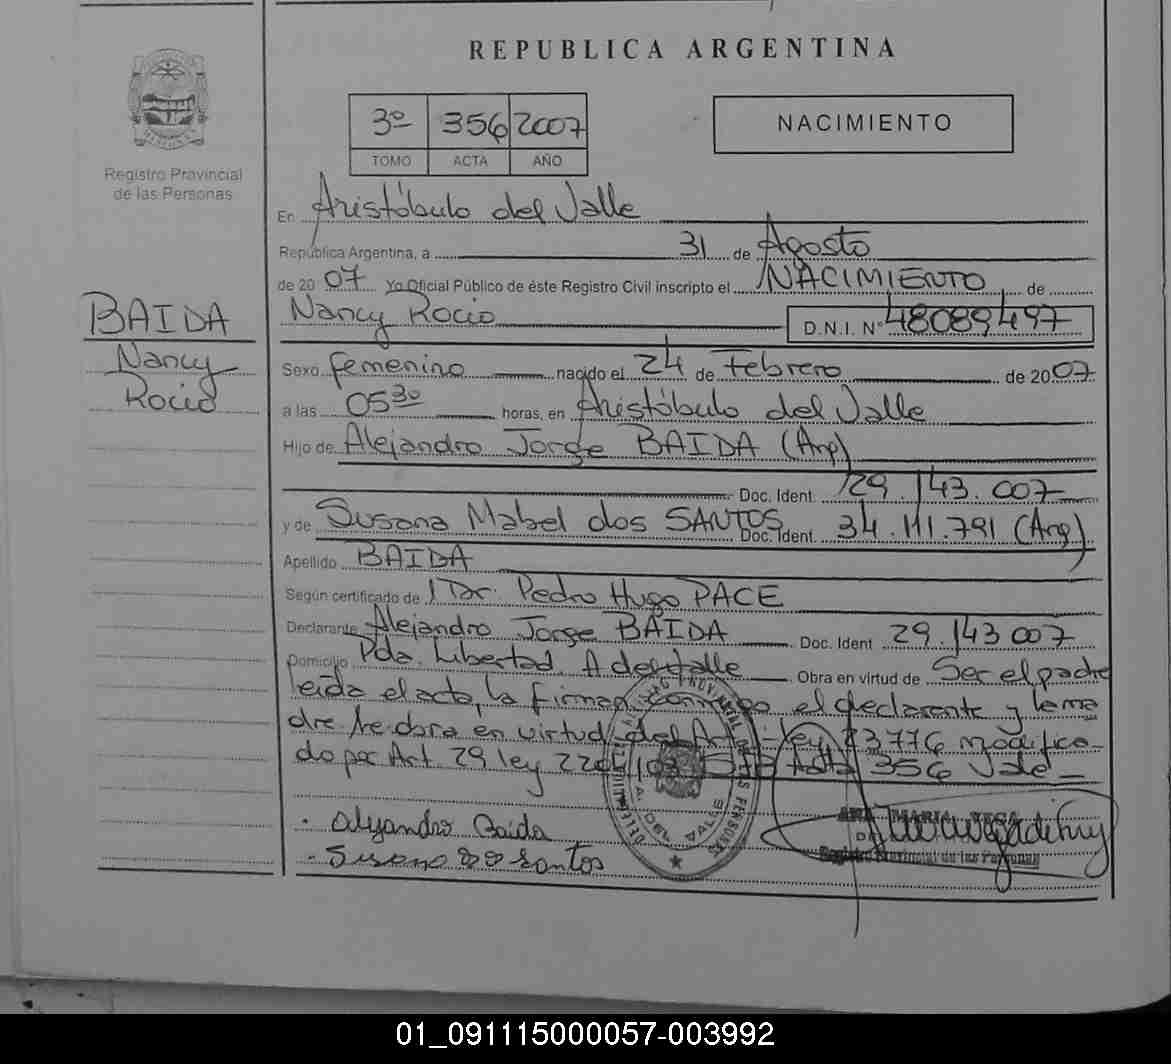 REPUBLICA ARGENTINA
3º 356 2007
TOMO ACTA AÑO
NACIMIENTO
MISIONES
Registro Provincial
de las Personas
En Aristóbulo del Valle
República Argentina, a 31 de Agosto
de 2007 Yo Oficial Público de éste Registro Civil inscripto el NACIMIENTO de
Nancy Rocio D.N.I. Nº 48089497
BAIDA
Nancy
Rocio
Sexo femenino nacido el 24 de Febrero de 2007
a las 05 30 horas, en Aristóbulo del Valle
Hijo de Alejandro Jorge BAIDA (Arg)
Doc. Ident. 29.143.007
y de Susana Mabel dos SANTOS Doc. Ident. 34.111.791 (Arg)
Apellido BAIDA
Según certificado de Dr. Pedro Hugo PACE
Declarante Alejandro Jorge BAIDA Doc. Ident 29.143 007
Domicilio Pda. Libertad. A del Valle Obra en virtud de Ser el padre
leida el acta, la firman conmigo el declarante y la ma
dre. Se obra en virtud del ley 23776 modifica-
do por Art. 29 ley 356 Vale
Alejandro Baida
Susana dos Santos
ANA MARIA VEGA
Registro Provincial de las Personas
A. DEL VALLE
01_091115000057-003992